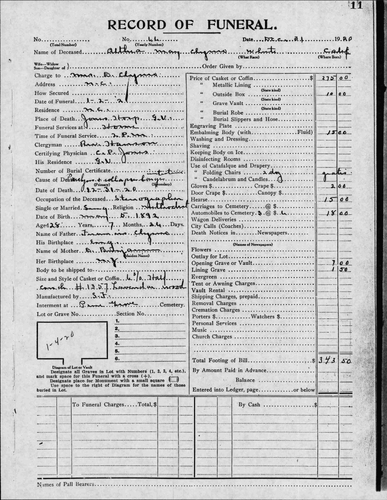 11
RECORD OF FUNERAL.
No. (Total Number) No. 66 (Yearly Number) Date Dec. 31 1920
Name of Deceased Altha May Clyma White (What Race) Calif (Where Born)
Wife—Widow
Son—Daughter of
Order Given by
Charge to Mrs. B. Clyma
Address N.C.
Date of Funeral 1-2-21
Residence N.C.
Place of Death Jones Hosp. G.V.
Funeral Services at Home
Time of Funeral Service 2 P.M.
Clergyman Rev. Hanson
Certifying Physician C.P. Jones
His Residence G.V.
Number of Burial Certificate
Cause of Death
Date of Death 12-31-20
Occupation of the Deceased Stenographer
Single or Married Single Religion Methodist
Date of Birth May 5, 1892
Aged 28 Years, 7 Months, 26 Days
Name of Father Francis Clyma
His Birthplace Eng.
Name of Mother B. Benjamin
Her Birthplace
Size and Style of Casket or Coffin 6/0 Half
Couch H 1357 Lavender
Manufactured by S.J.
Interment at Pine Grove Cemetery,
Lot or Grave No. Section No.
1
2
3
4
5
6
1-4-20
Diagram of Lot or Vault
Designate all Graves in Lot with Numbers (1, 2, 3, 4, etc.)
and mark space for this Funeral with a cross (+).
Designate place for Monument with a small square
Use space to the right of Diagram for the names of those
buried in Lot.
Price of Casket or Coffin $ 275 00
" Metallic Lining (State kind)
" Outside Box (State kind) 10 00
" Grave Vault (State kind)
" Burial Robe (State kind)
" Burial Slippers and Hose
Engraving Plate
Embalming Body (with Fluid) 15 00
Washing and Dressing
Shaving
Keeping Body on Ice
Disinfecting Rooms
Use of Catafalque and Drapery
" Folding Chairs
" Candelabrum and Candles
Gloves $ Crape $ 2 00
Door Crape $ Canopy $
Hearse 15 00
Carriages to Cemetery @ $
Automobiles to Cemetery 3 @ $ 6 18 00
Wagon Deliveries
City Calls (Coaches)
Death Notices in Newspapers
(Names of Newspapers)
Flowers
Outlay for Lot
Opening Grave or Vault 7 00
Lining Grave 1 50
Evergreen
Tent or Awning Charges
Vault Rental
Shipping Charges, prepaid
Removal Charges
Cremation Charges
Porters $ Watchers $
Personal Services
Music
Church Charges
Total Footing of Bill $ 343 50
By Amount Paid in Advance
Balance
Entered into Ledger, page or below
To Funeral Charges Total, $ By Cash $
Names of Pall Bearers